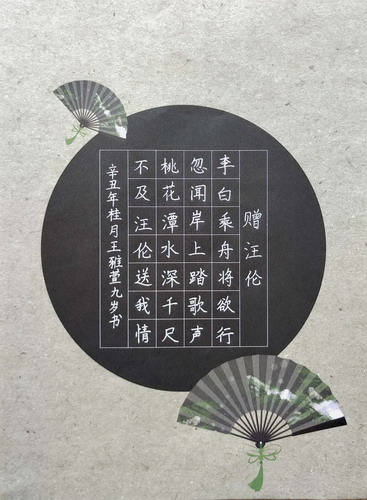 赠汪伦
李白乘舟将欲行
忽闻岸上踏歌声
桃花潭水深千尺
不及汪伦送我情
辛丑年桂月王雅萱九岁书